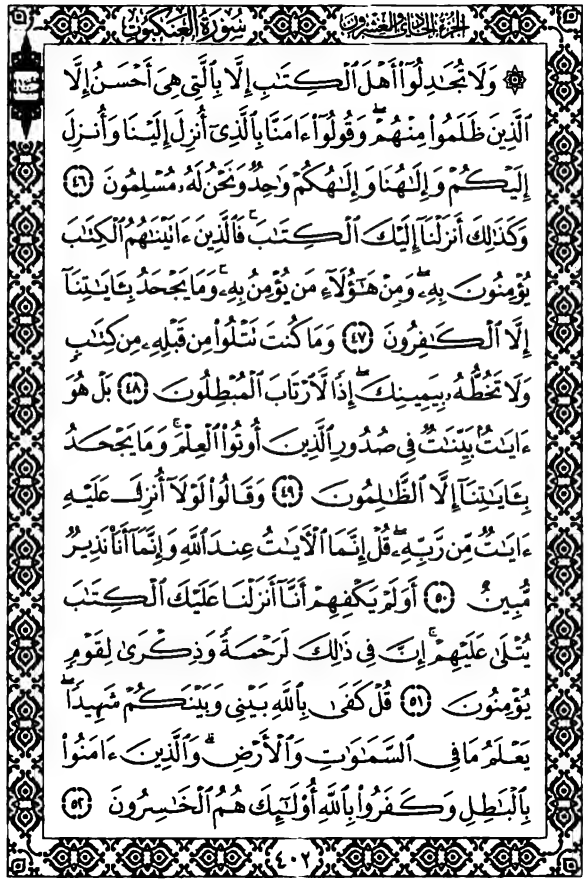 سُورَةُ العَنكَبُوت الجزء الحادي والعشرون
۞ وَلَا تُجَٰدِلُوٓا۟ أَهْلَ ٱلْكِتَٰبِ إِلَّا بِٱلَّتِى هِىَ أَحْسَنُ إِلَّا
ٱلَّذِينَ ظَلَمُوا۟ مِنْهُمْ ۖ وَقُولُوٓا۟ ءَامَنَّا بِٱلَّذِىٓ أُنزِلَ إِلَيْنَا وَأُنزِلَ
إِلَيْكُمْ وَإِلَٰهُنَا وَإِلَٰهُكُمْ وَٰحِدٌ وَنَحْنُ لَهُۥ مُسْلِمُونَ ٤٦
وَكَذَٰلِكَ أَنزَلْنَآ إِلَيْكَ ٱلْكِتَٰبَ ۚ فَٱلَّذِينَ ءَاتَيْنَٰهُمُ ٱلْكِتَٰبَ
يُؤْمِنُونَ بِهِۦ ۖ وَمِنْ هَٰٓؤُلَآءِ مَن يُؤْمِنُ بِهِۦ ۚ وَمَا يَجْحَدُ بِـَٔايَٰتِنَآ
إِلَّا ٱلْكَٰفِرُونَ ٤٧ وَمَا كُنتَ تَتْلُوا۟ مِن قَبْلِهِۦ مِن كِتَٰبٍ
وَلَا تَخُطُّهُۥ بِيَمِينِكَ ۖ إِذًا لَّٱرْتَابَ ٱلْمُبْطِلُونَ ٤٨ بَلْ هُوَ
ءَايَٰتٌۢ بَيِّنَٰتٌ فِى صُدُورِ ٱلَّذِينَ أُوتُوا۟ ٱلْعِلْمَ ۚ وَمَا يَجْحَدُ
بِـَٔايَٰتِنَآ إِلَّا ٱلظَّٰلِمُونَ ٤٩ وَقَالُوا۟ لَوْلَآ أُنزِلَ عَلَيْهِ
ءَايَٰتٌ مِّن رَّبِّهِۦ ۖ قُلْ إِنَّمَا ٱلْءَايَٰتُ عِندَ ٱللَّهِ وَإِنَّمَآ أَنَا۠ نَذِيرٌ
مُّبِينٌ ٥٠ أَوَلَمْ يَكْفِهِمْ أَنَّآ أَنزَلْنَا عَلَيْكَ ٱلْكِتَٰبَ
يُتْلَىٰ عَلَيْهِمْ ۚ إِنَّ فِى ذَٰلِكَ لَرَحْمَةً وَذِكْرَىٰ لِقَوْمٍ
يُؤْمِنُونَ ٥١ قُلْ كَفَىٰ بِٱللَّهِ بَيْنِى وَبَيْنَكُمْ شَهِيدًا ۖ
يَعْلَمُ مَا فِى ٱلسَّمَٰوَٰتِ وَٱلْأَرْضِ ۗ وَٱلَّذِينَ ءَامَنُوا۟
بِٱلْبَٰطِلِ وَكَفَرُوا۟ بِٱللَّهِ أُو۟لَٰٓئِكَ هُمُ ٱلْخَٰسِرُونَ ٥٢
٤٠٢